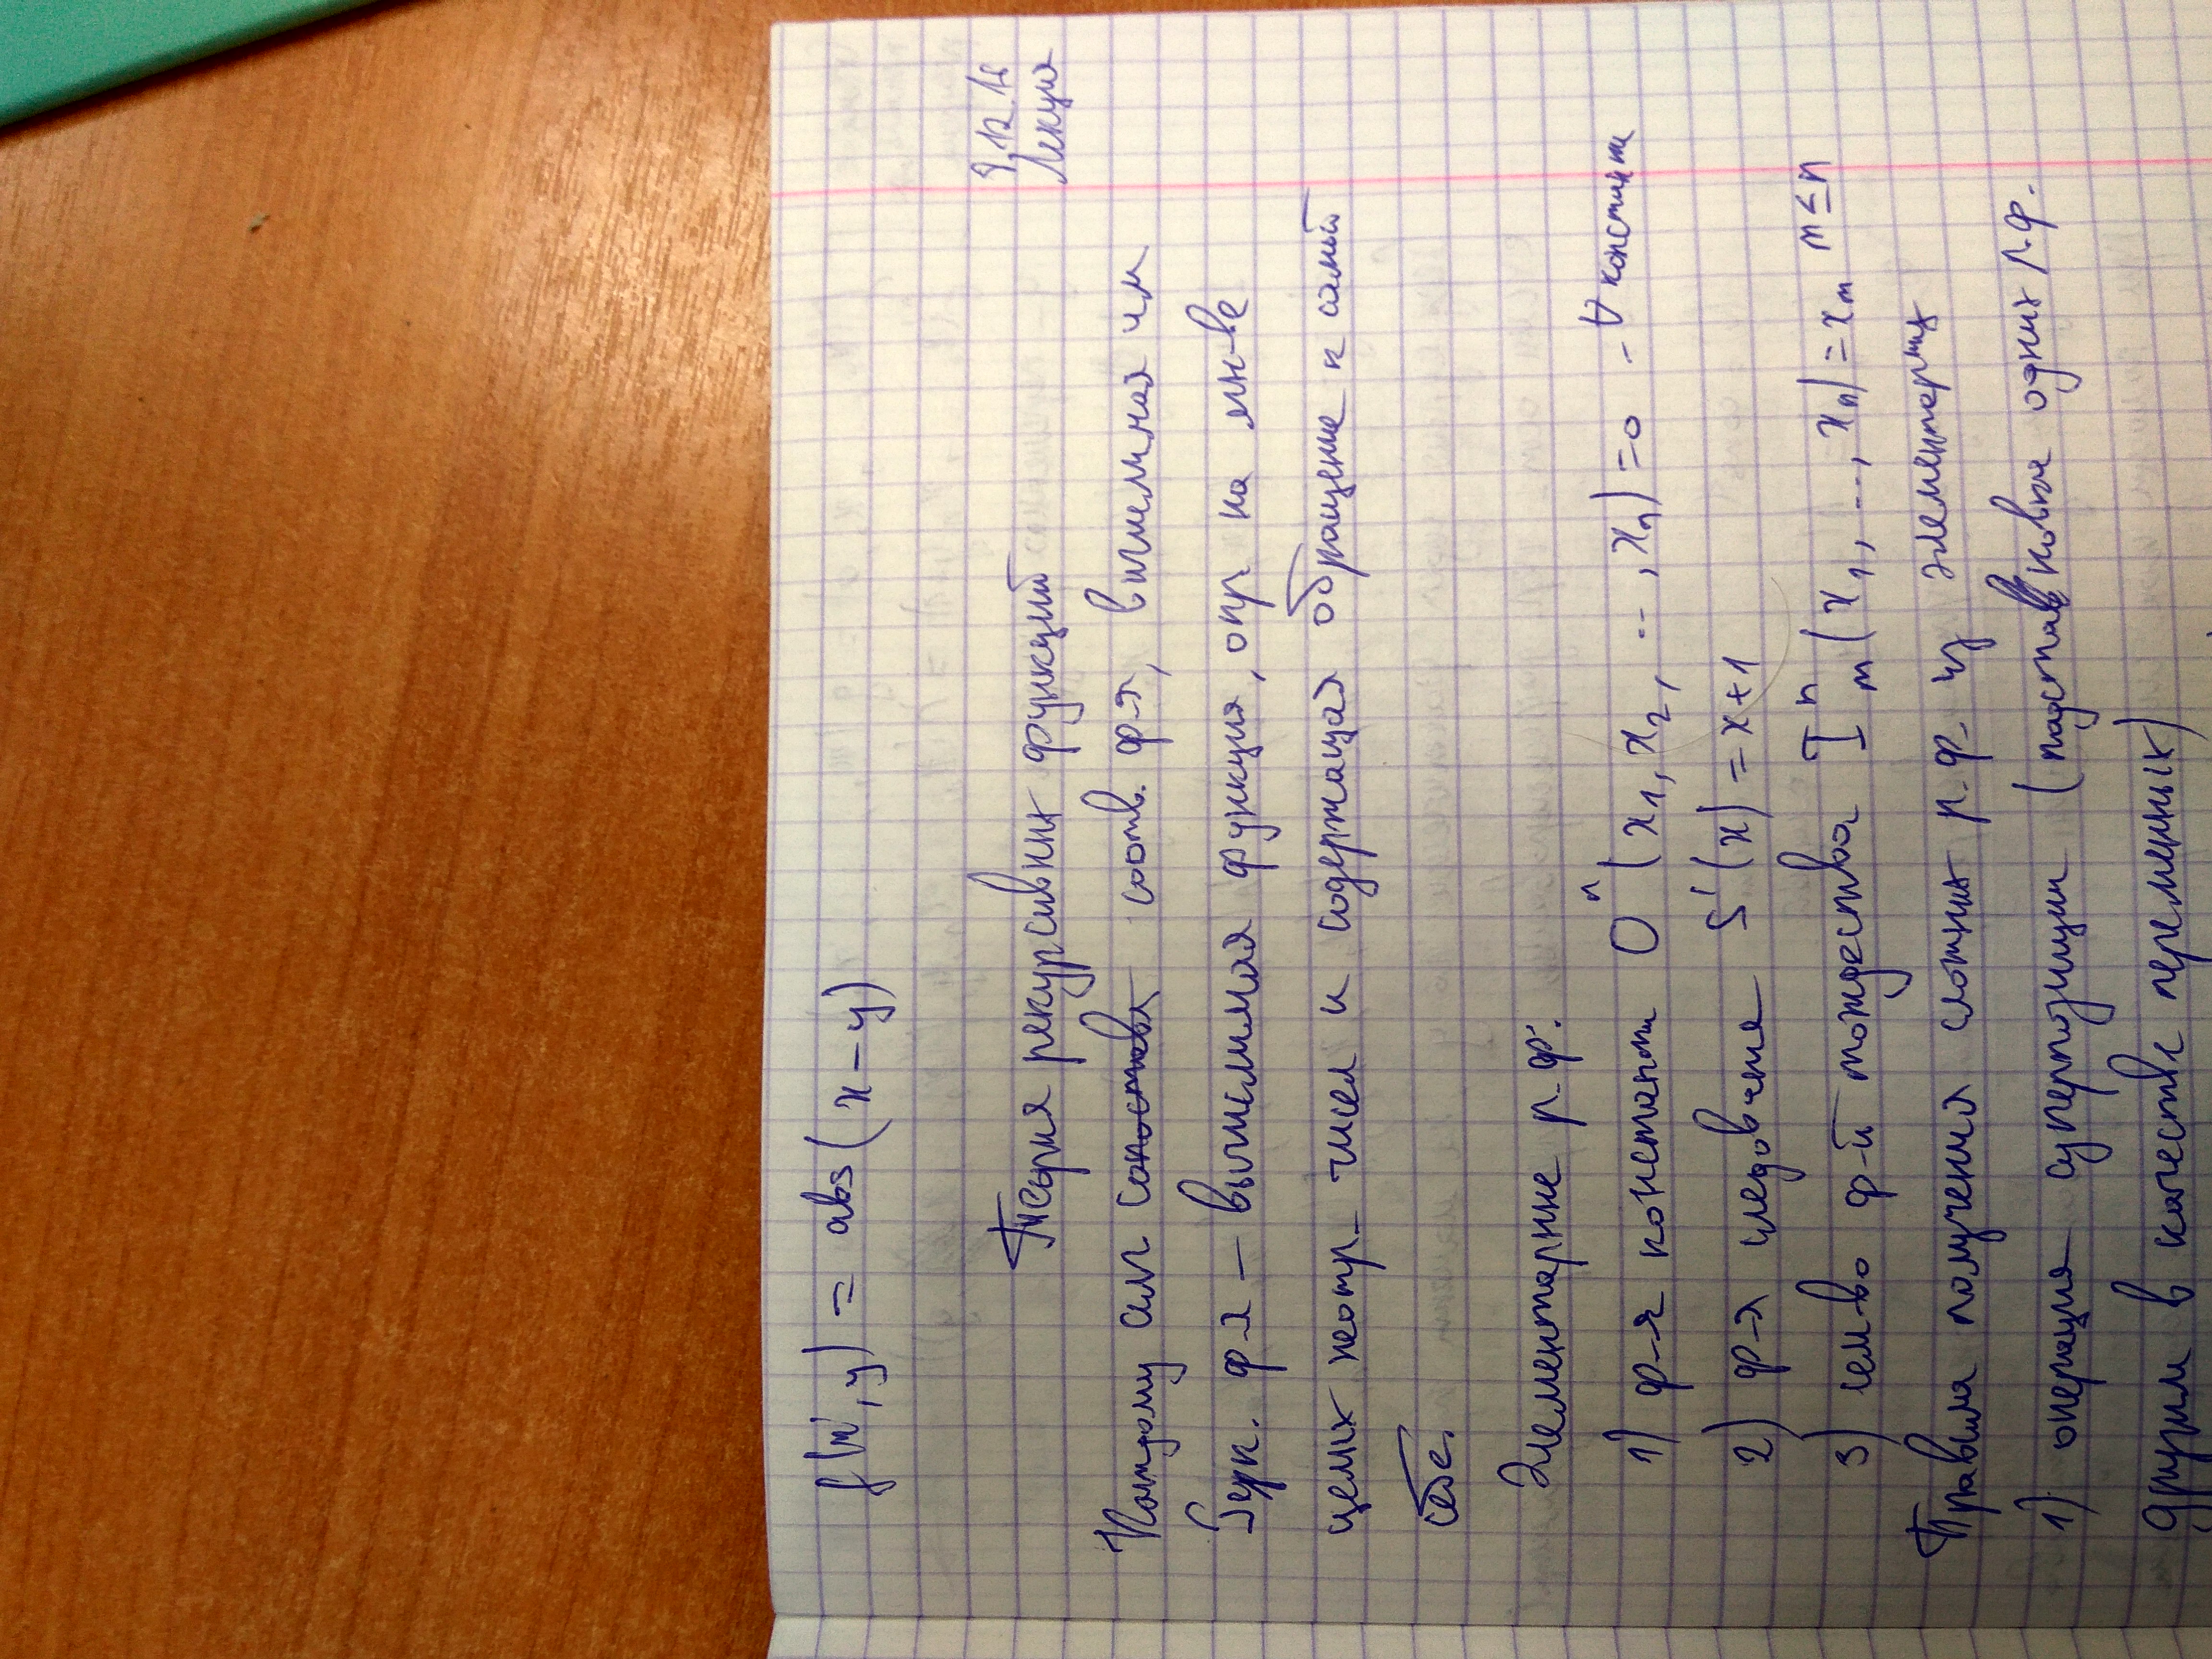 f(x, y) = abs(x-y)
9.12.16
Лекция
Теория рекурсивнх функций
Каждому алг соотв. ф-я, вычисляемая им
Рек. ф-я - вычислимая функция, опр на мн-ве
целых неотр. чисел и содержащая обращение к самой
себе.
Элементарные р.ф.
1) ф-я константы O^n (x1, x2, ..., xn) = 0 - ∀ константы
2) ф-я следования S'(x) = x+1
3) сем-во ф-й тождества I^n_m (x1, ..., xn) = xm m≤n
Правила получения сложнх р.ф. из элементарнх
1) операция суперпозиции (подстановкой одних р.ф.
другим в качестве переменных)